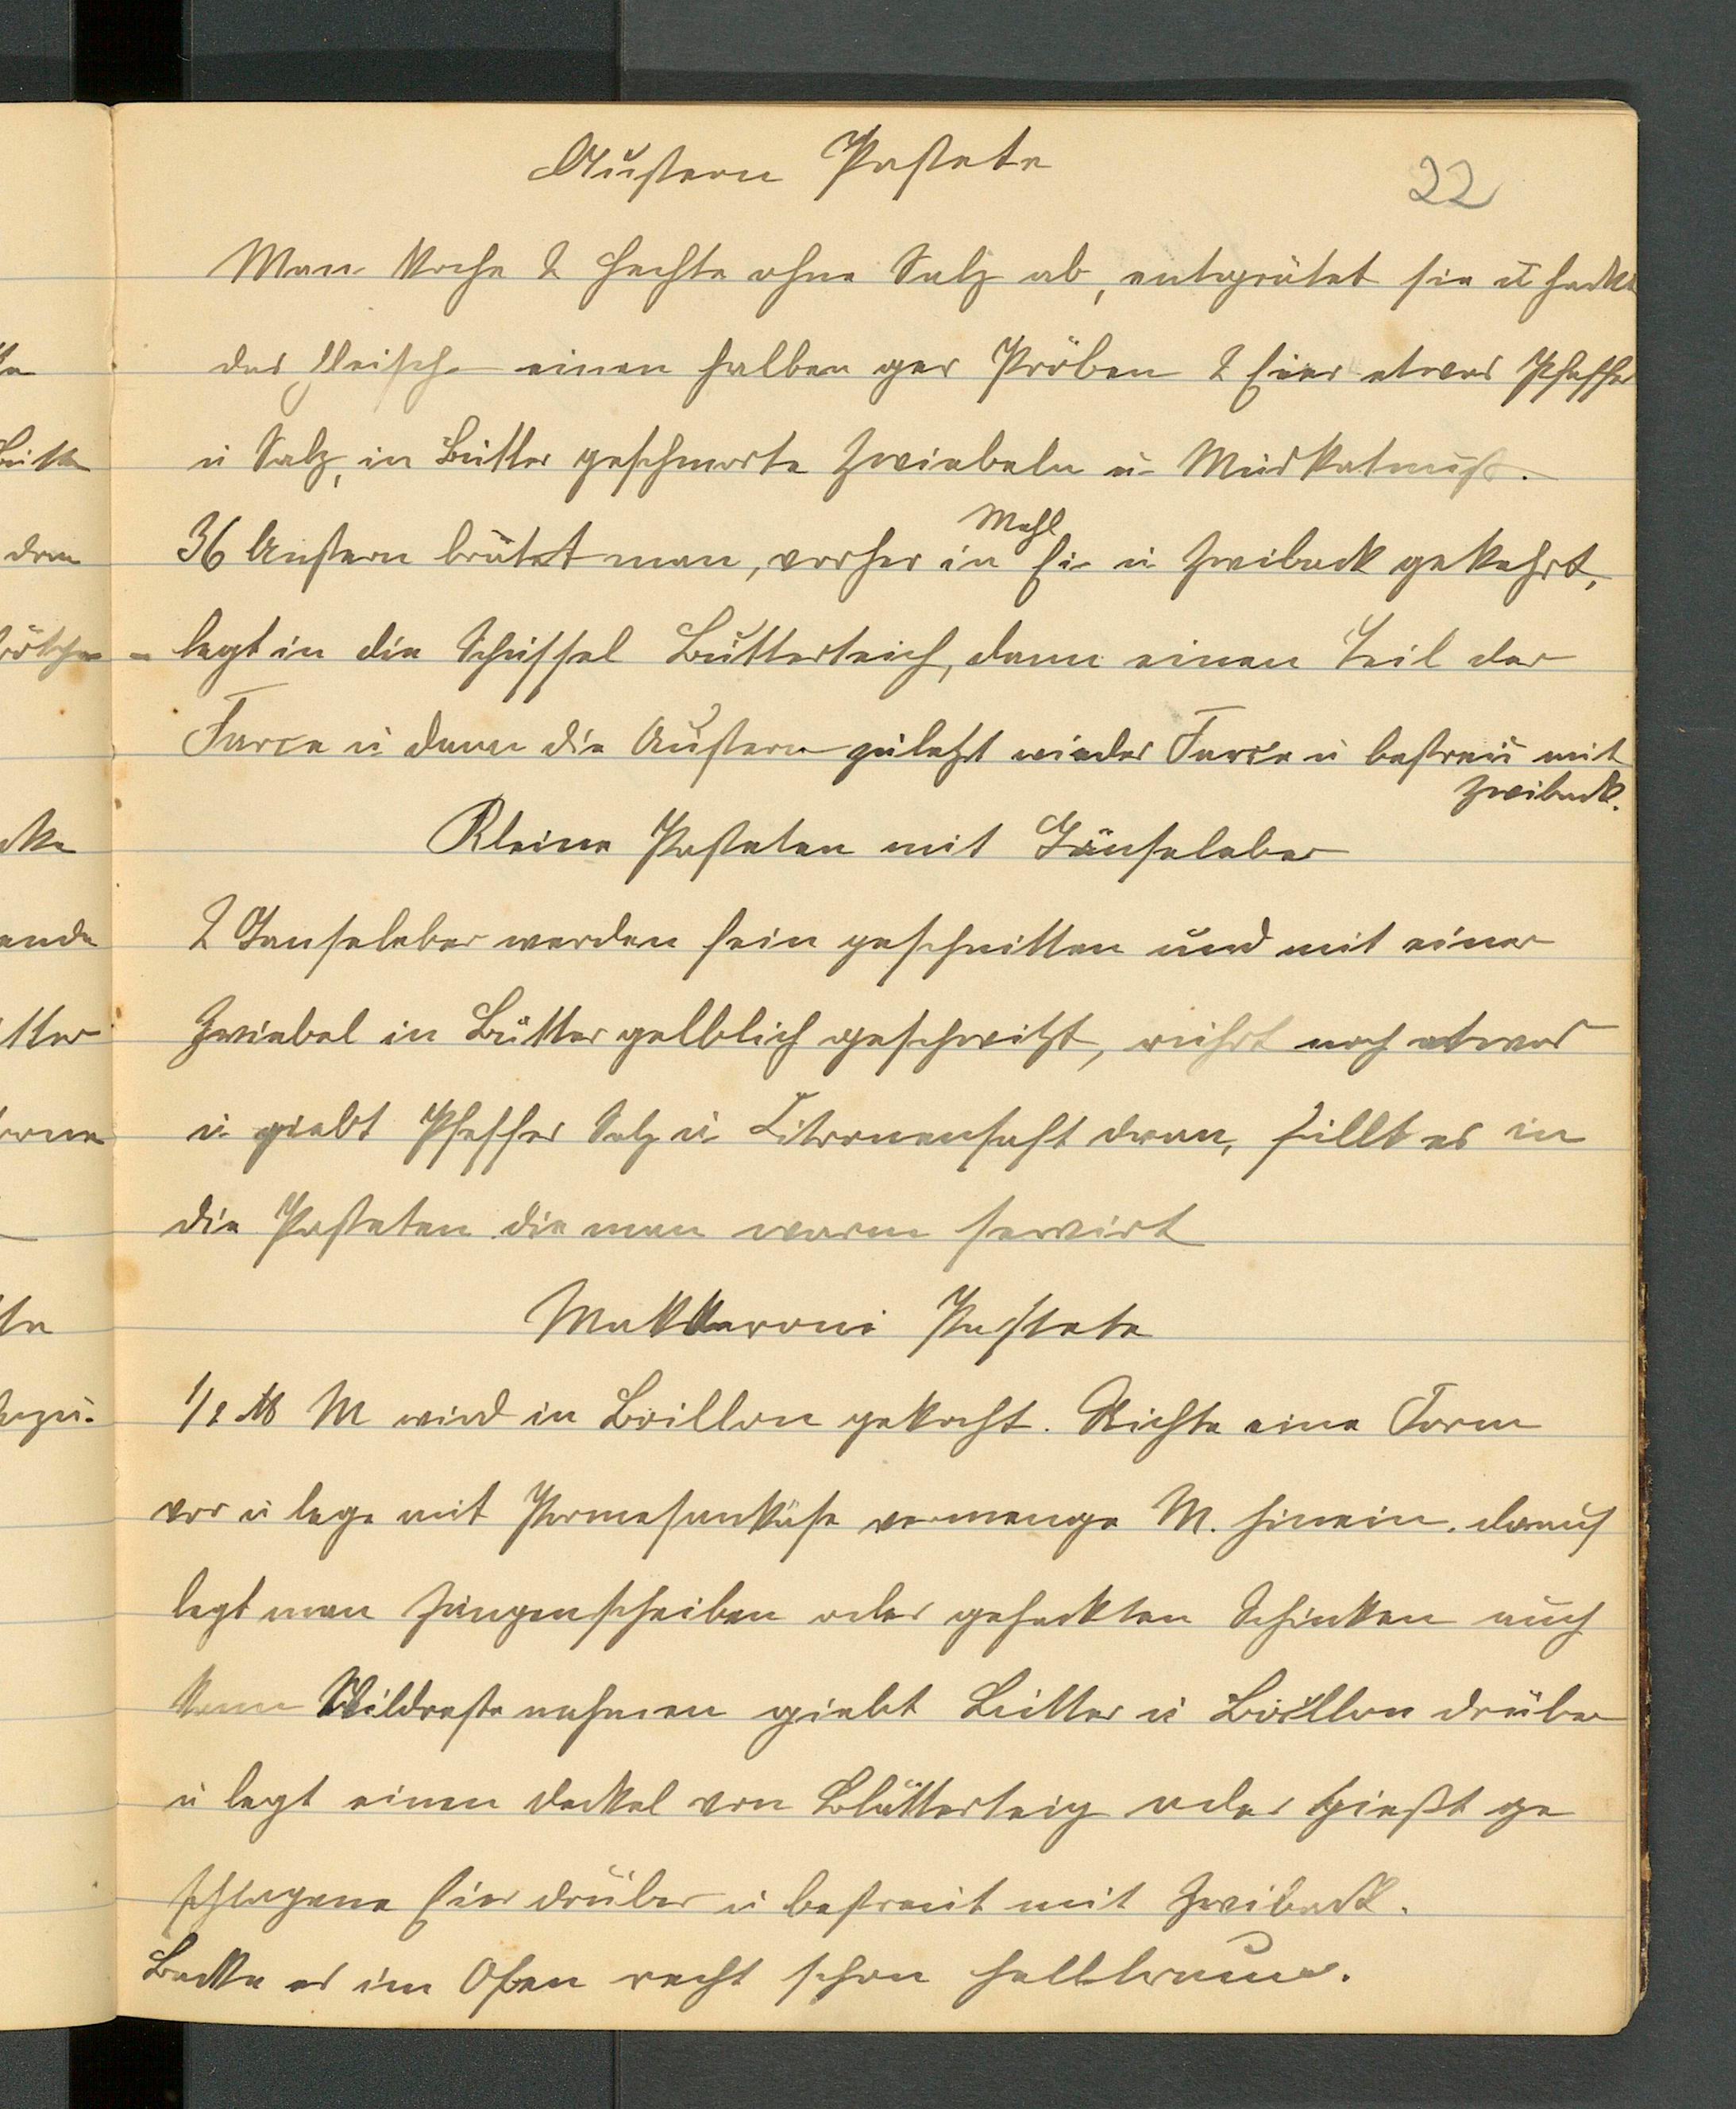 Austern Pastete
22
Man koche 2 Hechte ohne Salz ab, entgrätet sie u hackt
das Fleisch einen halben ger 2 Eier etwas Pfeffer
u Salz, in Butter geschmorte Zwiebeln u Muskatnuß.
Mehl
36 Austern brätet man, vorher in Ei u Zwiback gekehrt,
legt in die Schüssel Butterteich, dann einen Teil der
Farce u dann die Austern zuletzt wieder Farce u bestreu mit
Zwiback.
Kleine Pasteten mit Gänseleber
2 Ganseleber werden fein geschnitten und mit einer
Zwiebel in Butter gelblich geschwitzt, rührt noch etwas
u giebt Pfeffer Salz u Citronensaft dran, füllt es in
die Pasteten die man warm servirt
Makkaroni Pastete
1/2 ℔ M wird in Boillon gekocht. Richte eine Form
vor u lege mit Parmesankäse vermenge M. hinein. darauf
legt man Zungenscheiben oder gehackten Schinken auch
kann Wildreste nehmen giebt Butter u Boillon drüber
u legt einen Deckel von Blätterteig oder gießt ge
schlagene Eier drüber u bestreut mit Zwiback.
Backe es im Ofen recht schon hellbraun.